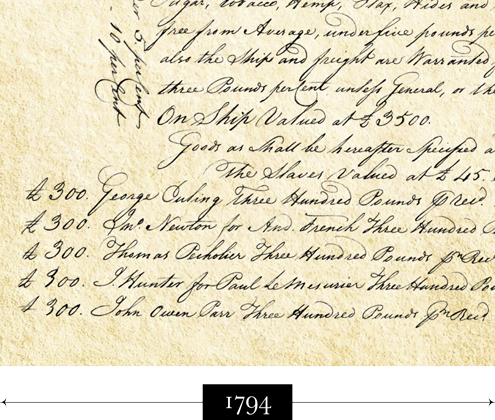 Sugar, tobacco, Hemp, Flax, Hides and
free from Average, under five pounds pe
also the Ship and freight are Warranted
three Pounds perCent unless General, or th
On Ship Valued at £3500.
Goods as shall be hereafter Specified a
The Slaves Valued at £45.
£300. George Three Hundred Pounds
£300. Jnº Newton for And. French Three Hundred
£300. Thomas Three Hundred Pounds
£300. J. Hunter for Paul Le Mesurier Three Hundred Pou
£300. John Owen Parr Three Hundred Pounds
er 5 perCent
10 per Cent
1794